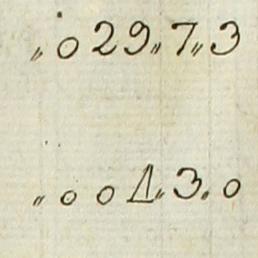 〃029〃7〃3
〃001〃3.0